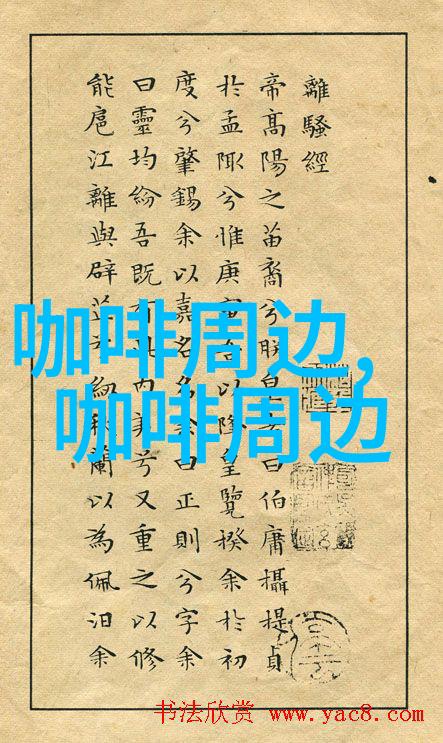 離騷經
帝高陽之苗裔兮朕皇曰伯庸攝提貞
於孟陬兮惟庚以降皇覽揆余於初
度兮肇錫余以嘉名名余曰正則兮字余
曰靈均紛吾既有此內美兮又重之以修
能扈江離與辟紉秋蘭以為佩汩余
咖啡周边,
咖啡周边
书法欣赏 www.yac8.com